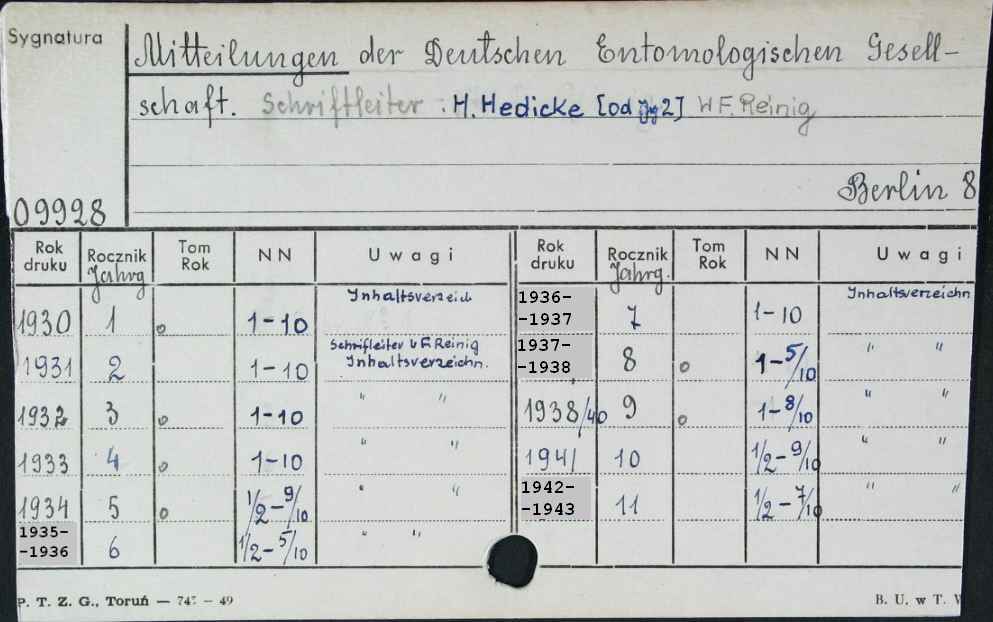 Sygnatura
Mitteilungen der Deutschen Entomologischen Gesell-
schaft. Schriftleiter: H. Hedicke [od Jg 2] W F. Reinig
Berlin 8
09928
Rok druku Rocznik Jahrg Tom Rok NN Uwagi Rok druku Rocznik Jahrg. Tom Rok NN Uwagi
1930 1 o 1-10 Inhaltsverzeich
1931 2 1-10 Schrifleiter W F. Reinig Inhaltsverzeichn.
1932 3 o 1-10 " "
1933 4 o 1-10 " "
1934 5 o 1/2-9/10 " "
1935--1936 6 1/2-5/10 " "
1936--1937 7 1-10 Inhaltsverzeichn
1937--1938 8 o 1-5/10 " "
1938/40 9 o 1-8/10 " "
1941 10 1/2-9/10 " "
1942--1943 11 1/2-7/10 " "
P. T. Z. G., Toruń — 745 — 49
B. U. w T.